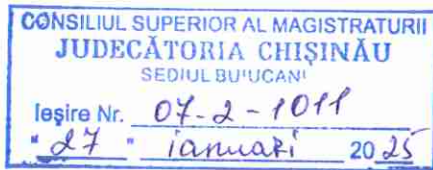 CONSILIUL SUPERIOR AL MAGISTRATURII
JUDECĂTORIA CHIȘINĂU
SEDIUL BU'UCANI
Ieșire Nr. 07-2-1011
"27" ianuari 2025